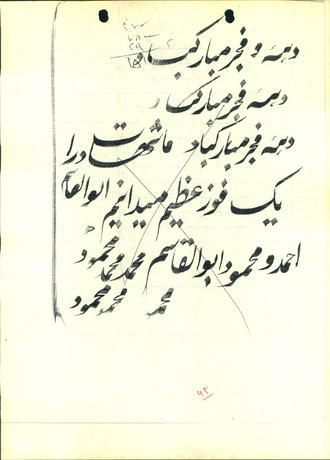 دهه و فجر مبارکباد
دهه فجر مبارکباد
دهه فجر مبارکباد ما شهادت را
یک فوز عظیم میدانیم ابوالقاسم
احمد و محمود ابوالقاسم محمد محمد محمود
محمد محمد محمود
۶۳